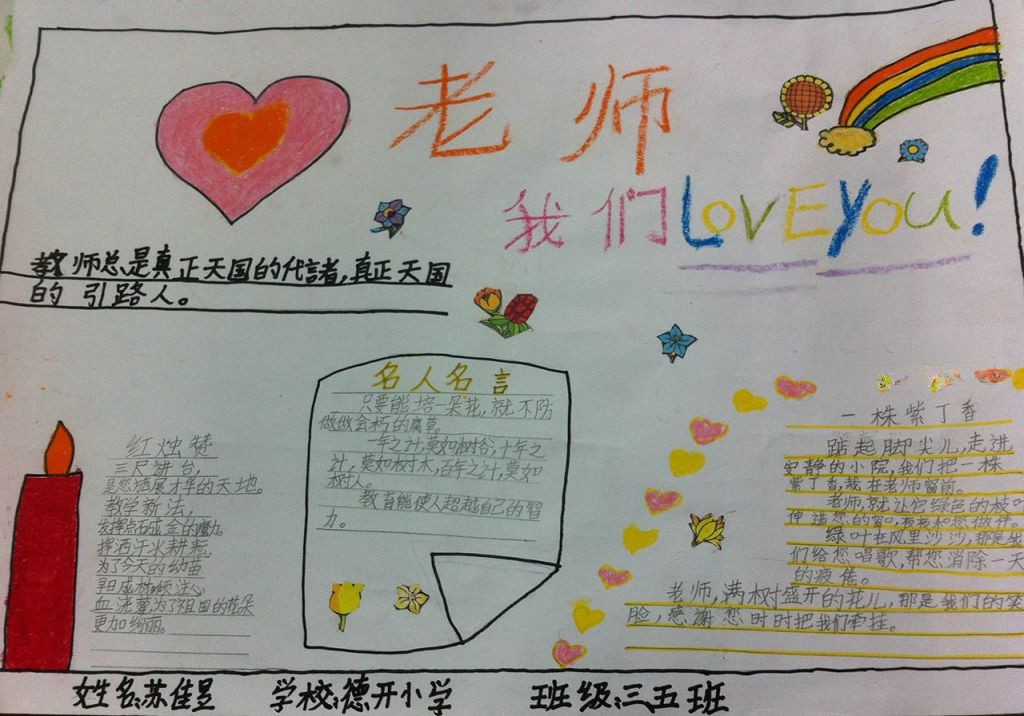 老师
我们LOVEYOU!
教师总是真正天国的代言者,真正天国
的引路人。
名人名言
只要能培一朵花,就不防
做做会朽的腐草。
一年之计,莫如树谷,十年之
计,莫如树木,百年之计,莫如
树人。
教育能使人超越自己的智
力。
红烛赞
三尺讲台,
是您施展才华的天地。
教学新法,
发挥点石成金的魔力。
挥洒汗水耕耘,
为了今天的幼苗
早日成材倾注心
血浇灌,为了祖国的花朵
更加绚丽。
一株紫丁香
踮起脚尖儿,走进
安静的小院,我们把一株
紫丁香,栽在老师窗前。
老师,就让它绿色的枝
伸进您的窗口,夜夜和您做伴。
绿叶在风里沙沙,那是我
们给您唱歌,帮您消除一天
的疲倦。
老师,满树盛开的花儿,那是我们的笑
脸,感谢您时时把我们牵挂。
姓名:苏佳昱 学校:德开小学 班级:三五班